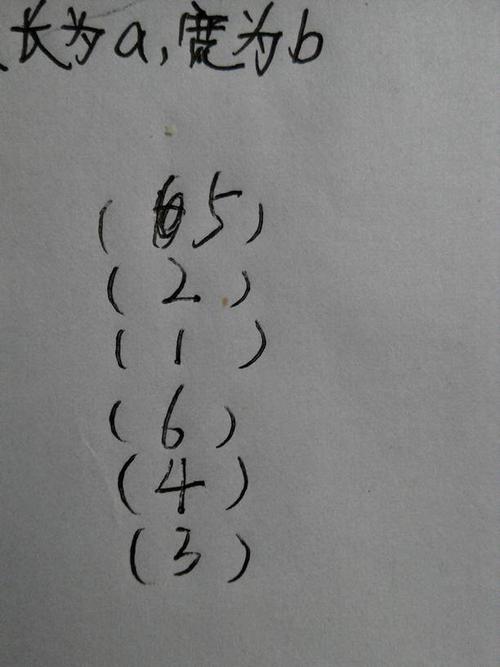 长为a,宽为b
( 5 )
( 2 )
( 1 )
( 6 )
( 4 )
( 3 )